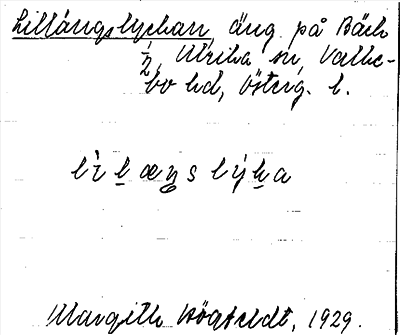 Lillängslyckan äng på Bäck
1/2, Ulrika sn, Valke-
bo hd, Österg. l.
lìlæŋslýka
Margith Högfeldt, 1929.